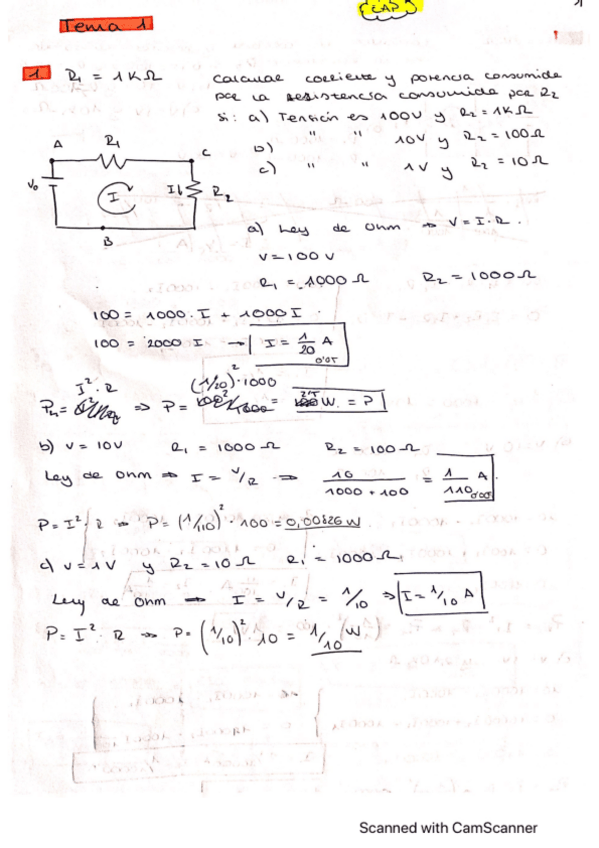 CAP
Tema 1
1 R₁ = 1KΩ calcular corriente y potencia consumida
por la resistencia consumida por R₂
si: a) Tensión es 100V y R₂ = 1KΩ
b) " " 10V y R₂ = 100Ω
c) " " 1V y R₂ = 10Ω
A R₁ C
V₀ I I↓ R₂
B
a) Ley de Ohm → V = I·R.
V = 100 V
R₁ = 1000 Ω R₂ = 1000 Ω
100 = 1000·I + 1000 I
100 = 2000 I → I = 1/20 A
0'05
I²·R (1/20)²·1000
⇒ P = = 2'5 W. = P
b) V = 10V R₁ = 1000 Ω R₂ = 100 Ω
Ley de Ohm → I = V/R → 10/(1000 + 100) = 1/110 A
P = I²·R → P = (1/110)²·100 = 0,00826 W
c) V = 1V y R₂ = 10 Ω R₁ = 1000 Ω
Ley de Ohm → I = V/R = 1/10 ⇒ I = 1/10 A
P = I²·R ⇒ P = (1/10)²·10 = 1/10 W
Scanned with CamScanner